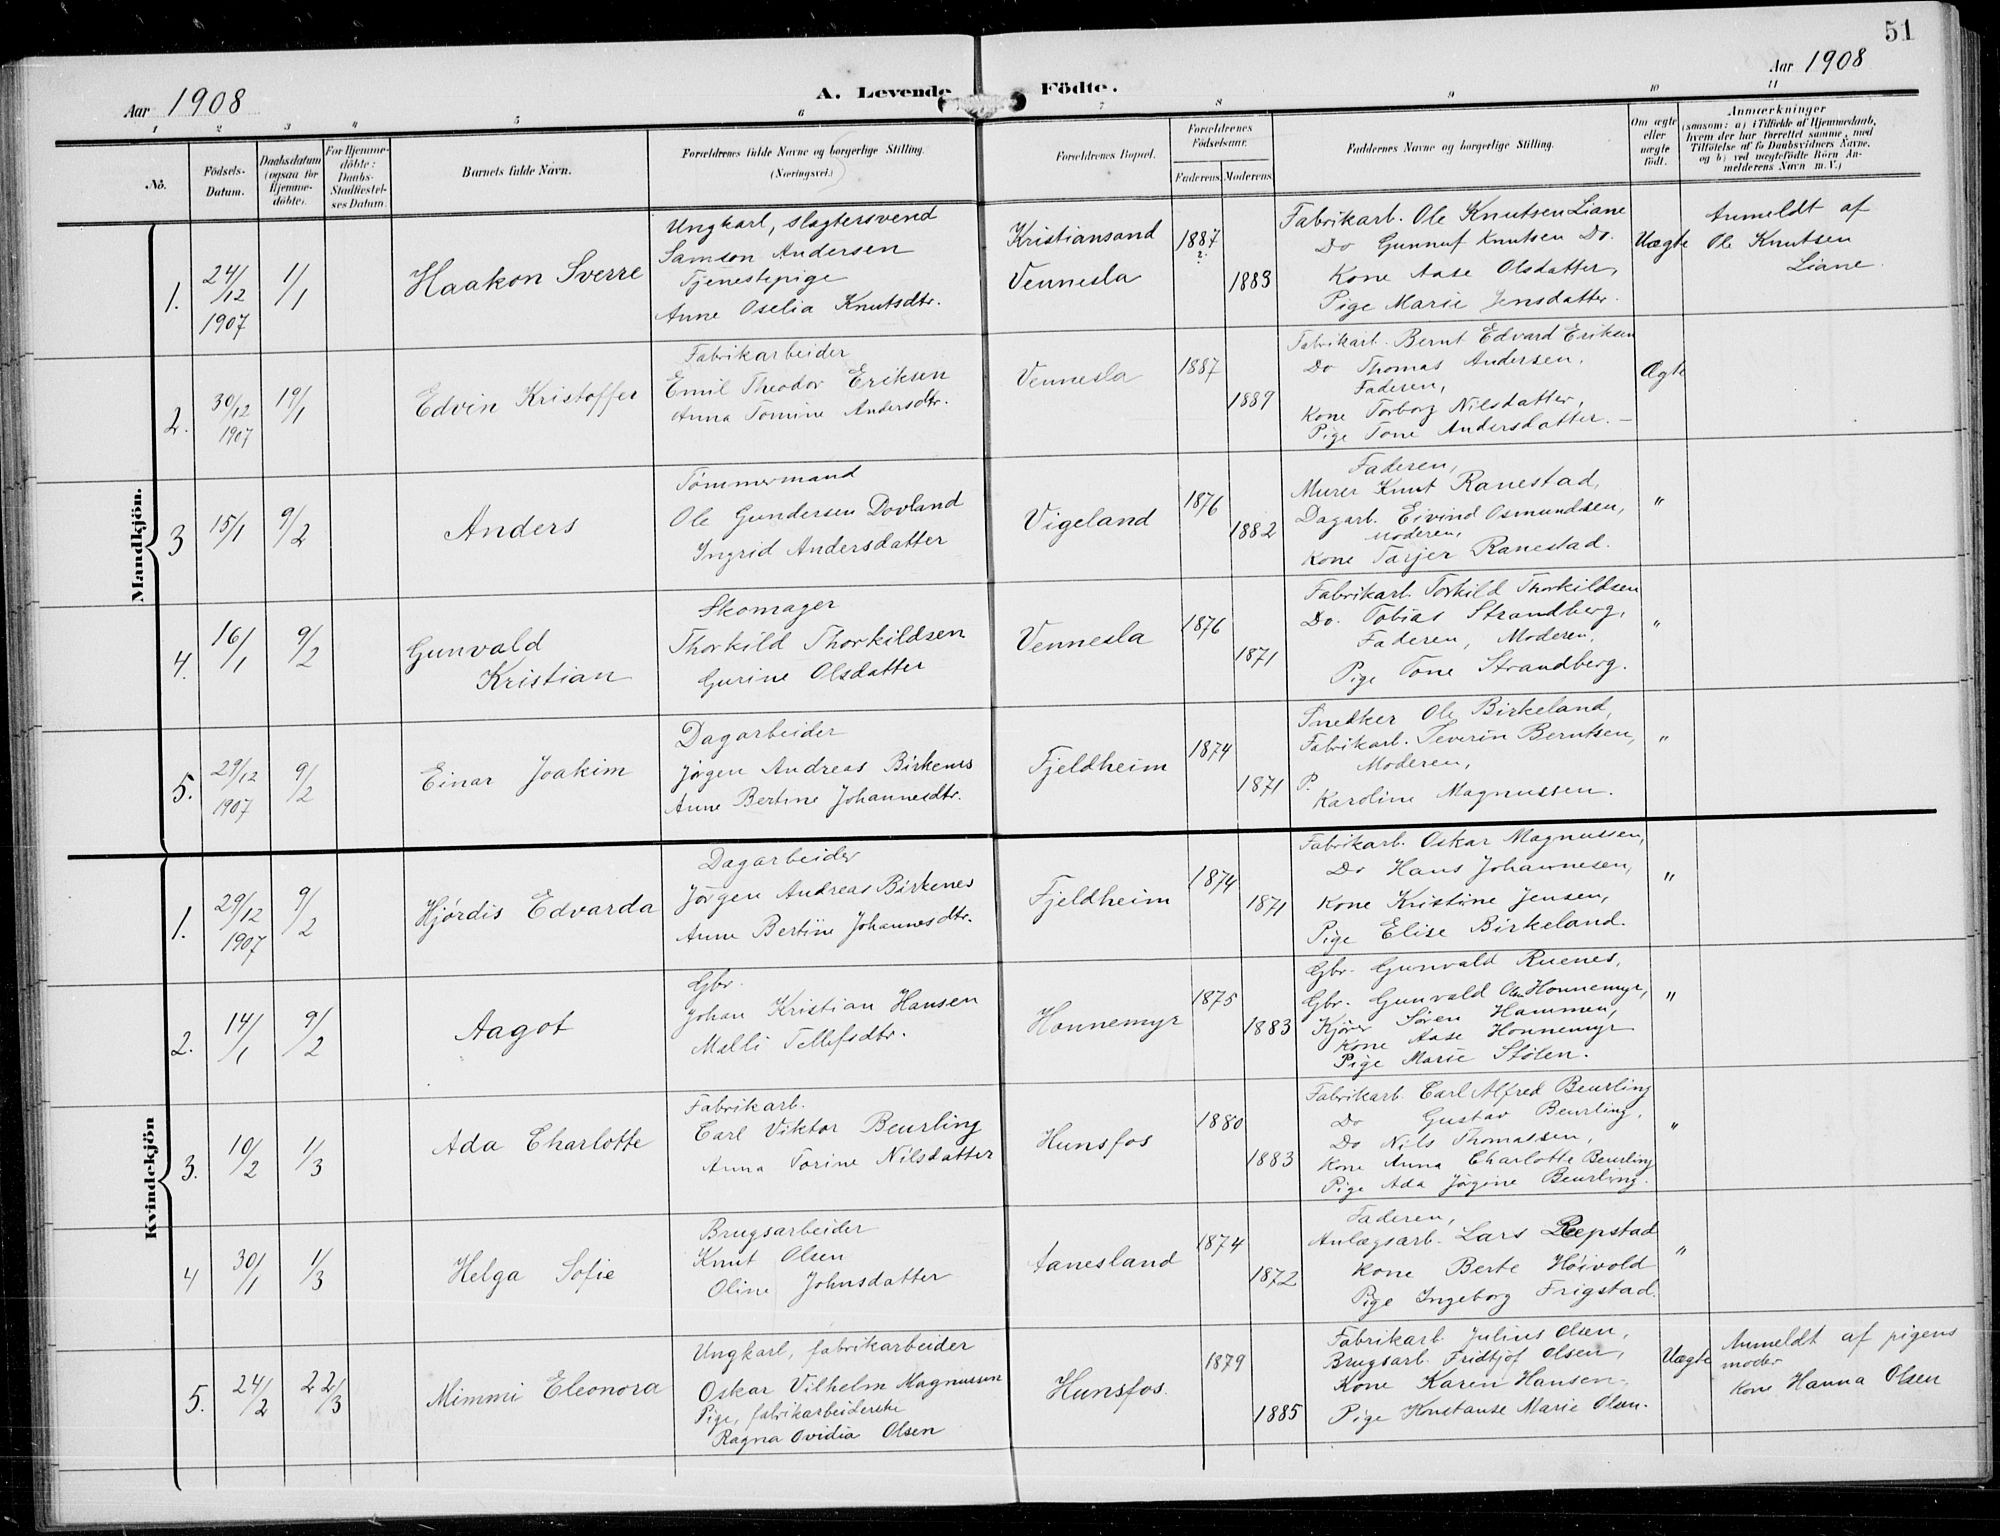 51
Aar 1908
A. Levende Födte.
Aar 1908
1 2 3 4 5 6 7 8 9 10 11
No.
Födsels-Datum.
Daabsdatum (ogsaa for Hjemme-döbte).
For Hjemme-döbte: Daabs-Stadfæstel-ses Datum.
Barnets fulde Navn.
Forældrenes fulde Navne og borgerlige Stilling.
(Næringsvei.)
Forældrenes Bopæl.
Forældrenes Födselsaar.
Faderens. Moderens.
Faddernes Navne og borgerlige Stilling.
Om ægte eller uægte födt.
Anmærkninger
(saasom: a) i Tilfælde af Hjemmedaab, hvem der har forrettet samme, med Tilföielse af to Daabsvidners Navne, og b) ved uægtefödte Börn Anmelderens Navn m. V.)
Mandkjön.
1. 24/12 1907 1/1 Haakon Sverre
Ungkarl, slagtersvend
Samson Andersen
Tjenestepige
Anne Oselia Knutsdtr.
Kristiansand
Vennesla
1887
2.
1883
Fabrikarb. Ole Knutsen Liane
Do Gunnuf Knutsen Do.
Kone Aase Olsdatter,
Pige Marie Jensdatter.
Uægte
Anmeldt af
Ole Knutsen
Liane.
2. 30/12 1907 19/1 Edvin Kristoffer
Fabrikarbeider
Emil Theodor Eriksen
Anna Tomine Andersdtr.
Vennesla
1887
1889
Fabrikarb. Bernt Edvard Eriksen
Do Thomas Andersen.
Faderen,
Kone Torborg Nilsdatter,
Pige Tone Andersdatter. —
Ægte
3 15/1 9/2 Anders
Tömmermand
Ole Gundersen Dovland
Ingrid Andersdatter
Vigeland
1876
1882
Faderen,
Murer Knut Ranestad,
Dagarb. Eivind Osmundsen,
Moderen,
Kone Tarjer Ranestad.
"
4. 16/1 9/2 Gunvald
Kristian
Skomager
Thorkild Thorkildsen
Gurine Olsdatter
Vennesla
1876
1871
Fabrikarb. Torkild Thorkildsen
Do. Tobias Strandberg,
Faderen, Moderen,
Pige Tone Strandberg.
"
5. 29/12 1907 9/2 Einar Joakim
Dagarbeider
Jörgen Andreas Birkenes
Anne Bertine Johannesdtr.
Fjeldheim
1874
1871
Snedker Ole Birkeland,
Fabrikarb. Severin Berntsen,
Moderen,
P. Karoline Magnussen.
"
Kvindekjön
1. 29/12 1907 9/2 Hjördis Edvarda
Dagarbeider
Jörgen Andreas Birkenes
Anne Bertine Johannesdtr.
Fjeldheim
1874
1871
Fabrikarb. Oskar Magnussen,
Do Hans Johannesen,
Kone Kristine Jensen,
Pige Elise Birkeland.
"
2. 14/1 9/2 Aagot
Gbr.
Johan Kristian Hansen
Malli Tellefsdtr.
Honnemyr
1875
1883
Gbr. Gunvald Ruenes,
Gbr. Gunvald Olsen Honnemyr,
Kjörer Sören Hammen,
Kone Aase Honnemyr
Pige Marie Stölen.
"
3. 10/2 1/3 Ada Charlotte
Fabrikarb.
Carl Viktor Beurling
Anna Torine Nilsdatter
Hunsfos
1880
1883
Fabrikarb. Carl Alfred Beurling
Do Gustav Beurling,
Do Nils Thomassen,
Kone Anna Charlotte Beurling
Pige Ada Jörgine Beurling.
"
4 30/1 1/3 Helga Sofie
Brugsarbeider
Knut Olsen
Oline Johnsdatter
Aanesland
1874
1872
Faderen,
Anlægsarb. Lars Repstad
Kone Berte Höivold
Pige Ingeborg Frigstad.
"
5. 24/2 22/3 Mimmi Eleonora
Ungkarl, fabrikarbeider
Oskar Vilhelm Magnussen
Pige, fabrikarbeiderske
Ragna Ovidia Olsen
Hunsfos.
1879
1885
Fabrikarb. Julius Olsen,
Brugsarb. Fridtjof Olsen,
Kone Karen Hansen,
Pige Konstanse Marie Olsen.
Uægte
Anmeldt af pigens
moder
Kone Hanna Olsen